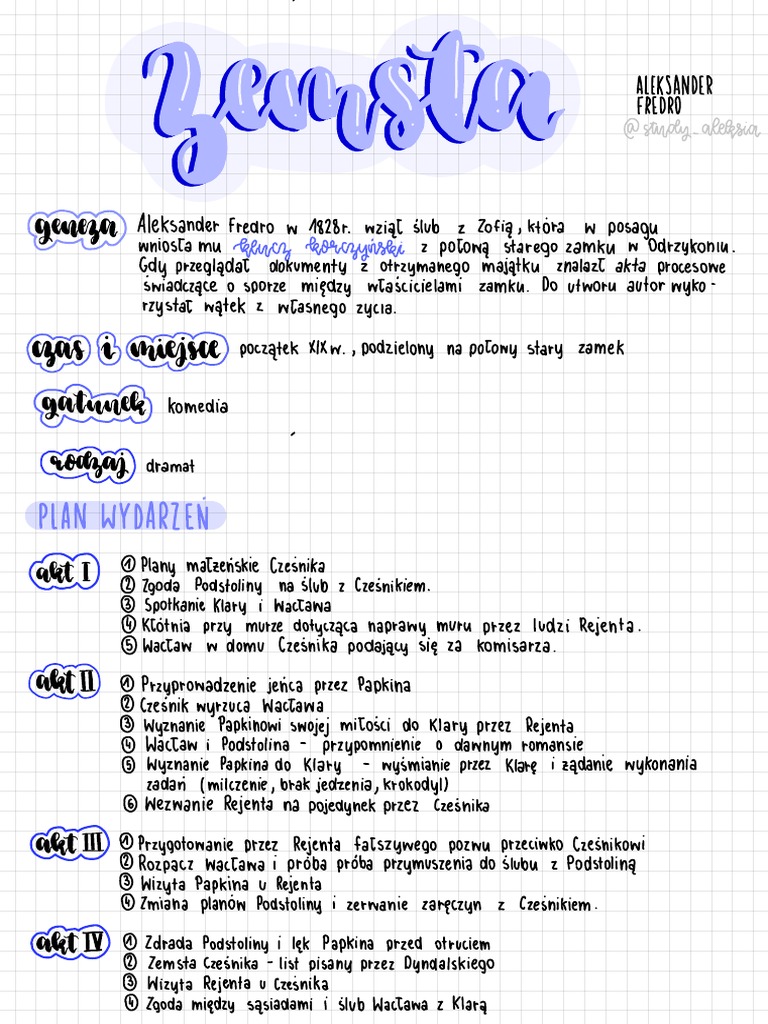 Zemsta
ALEKSANDER
FREDRO
@study_aleksia
geneza
Aleksander Fredro w 1828r. wziął ślub z Zofią, która w posagu
wniosła mu klucz korczyński z połową starego zamku w Odrzykoniu.
Gdy przeglądał dokumenty z otrzymanego majątku znalazł akta procesowe
świadczące o sporze między właścicielami zamku. Do utworu autor wyko-
rzystał wątek z własnego zycia.
czas i miejsce początek XIX w., podzielony na połowy stary zamek
gatunek komedia
rodzaj dramat
PLAN WYDARZEŃ
akt I
① Plany małżeńskie Cześnika
② Zgoda Podstoliny na ślub z Cześnikiem.
③ Spotkanie Klary i Wacława
④ Kłótnia przy murze dotycząca naprawy muru przez ludzi Rejenta.
⑤ Wacław w domu Cześnika podający się za komisarza.
akt II
① Przyprowadzenie jeńca przez Papkina
② Cześnik wyrzuca Wacława
③ Wyznanie Papkinowi swojej miłości do Klary przez Rejenta
④ Wacław i Podstolina - przypomnienie o dawnym romansie
⑤ Wyznanie Papkina do Klary - wyśmianie przez Klarę i żądanie wykonania
zadań (milczenie, brak jedzenia, krokodyl)
⑥ Wezwanie Rejenta na pojedynek przez Cześnika
akt III
① Przygotowanie przez Rejenta fałszywego pozwu przeciwko Cześnikowi
② Rozpacz Wacława i próba próba przymuszenia do ślubu z Podstoliną
③ Wizyta Papkina u Rejenta
④ Zmiana planów Podstoliny i zerwanie zaręczyn z Cześnikiem.
akt IV
① Zdrada Podstoliny i lęk Papkina przed otruciem
② Zemsta Cześnika - list pisany przez Dyndalskiego
③ Wizyta Rejenta u Cześnika
④ Zgoda między sąsiadami i ślub Wacława z Klarą